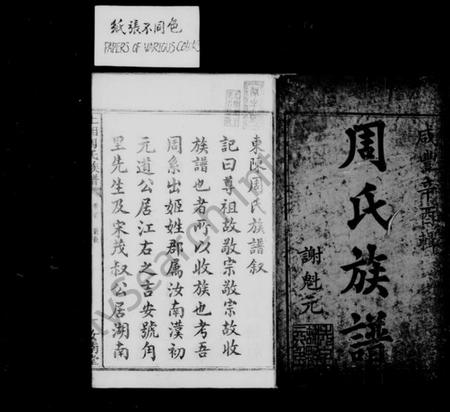 紙張不同色
PAPERS OF VARIOUS COLORS
咸豐辛酉輯
周氏族譜
謝魁元
東陳周氏族譜叙
記曰尊祖故敬宗敬宗故收
族譜也者所以收族也考吾
周系出姬姓郡屬汝南漢初
元道公居江右之吉安號角
里先生及宋茂叔公居湖南